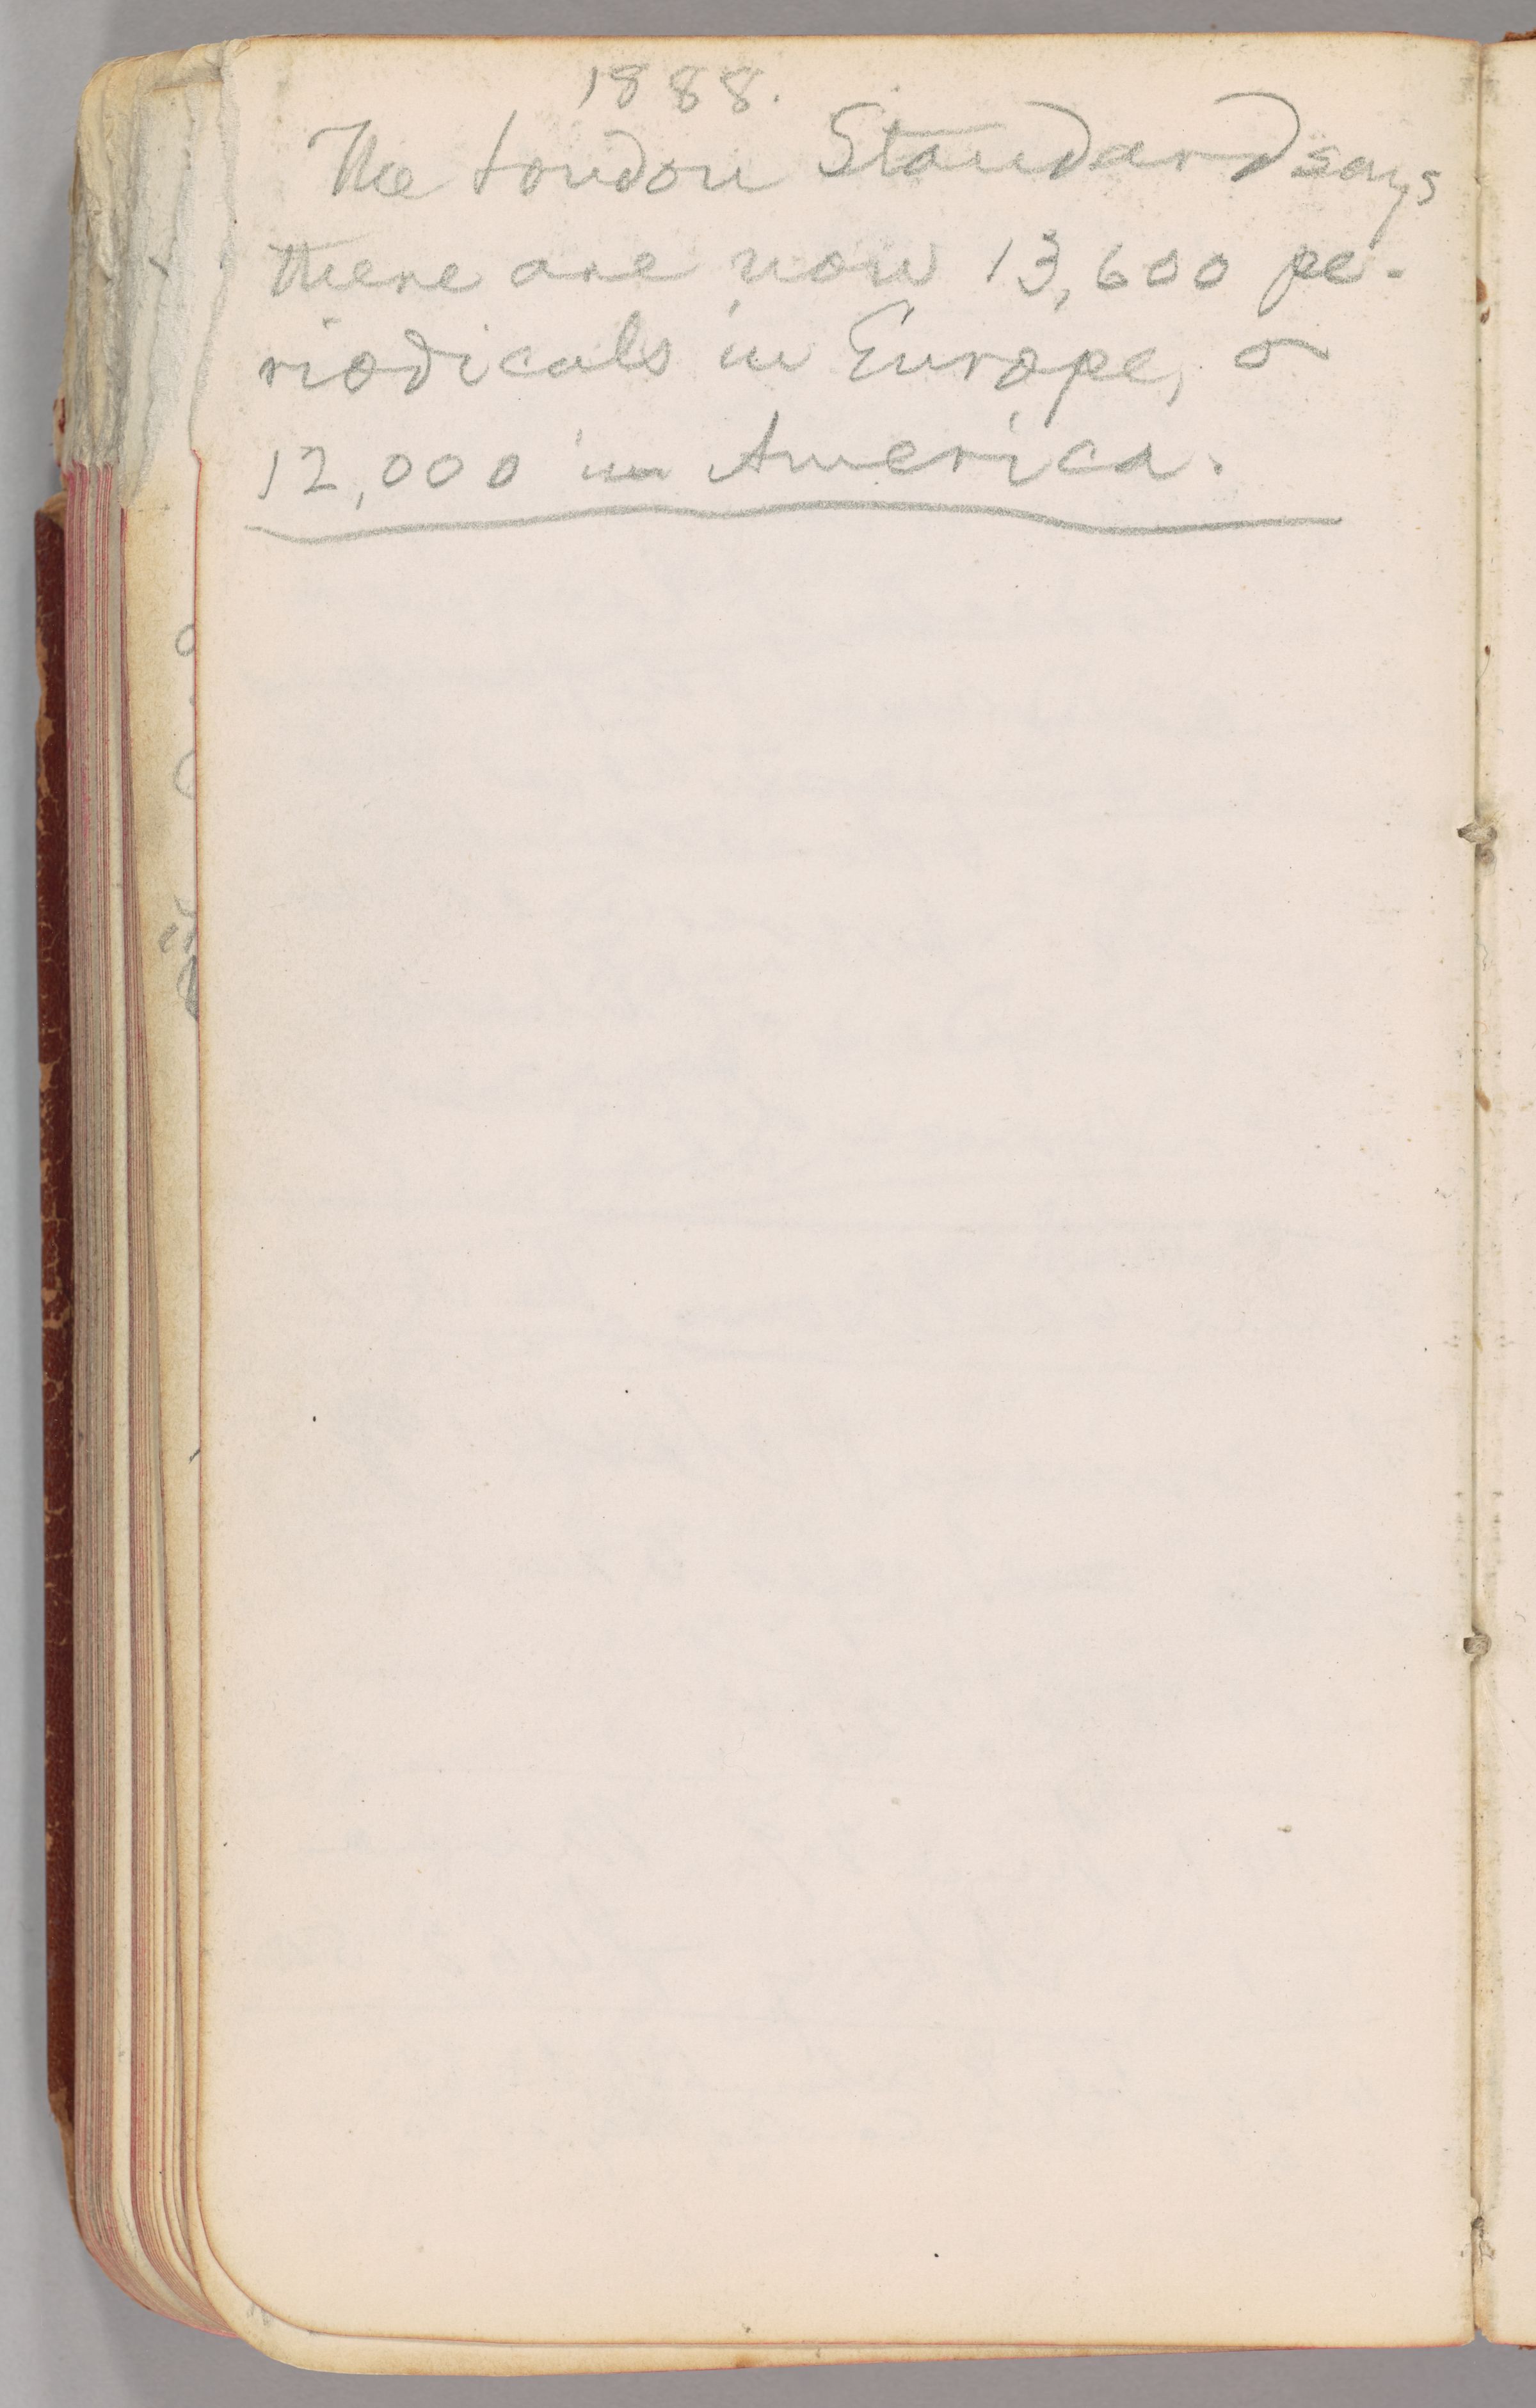 1888.
The London Standard says
there are now 13,600 pe-
riodicals in Europe, &
12,000 in America.